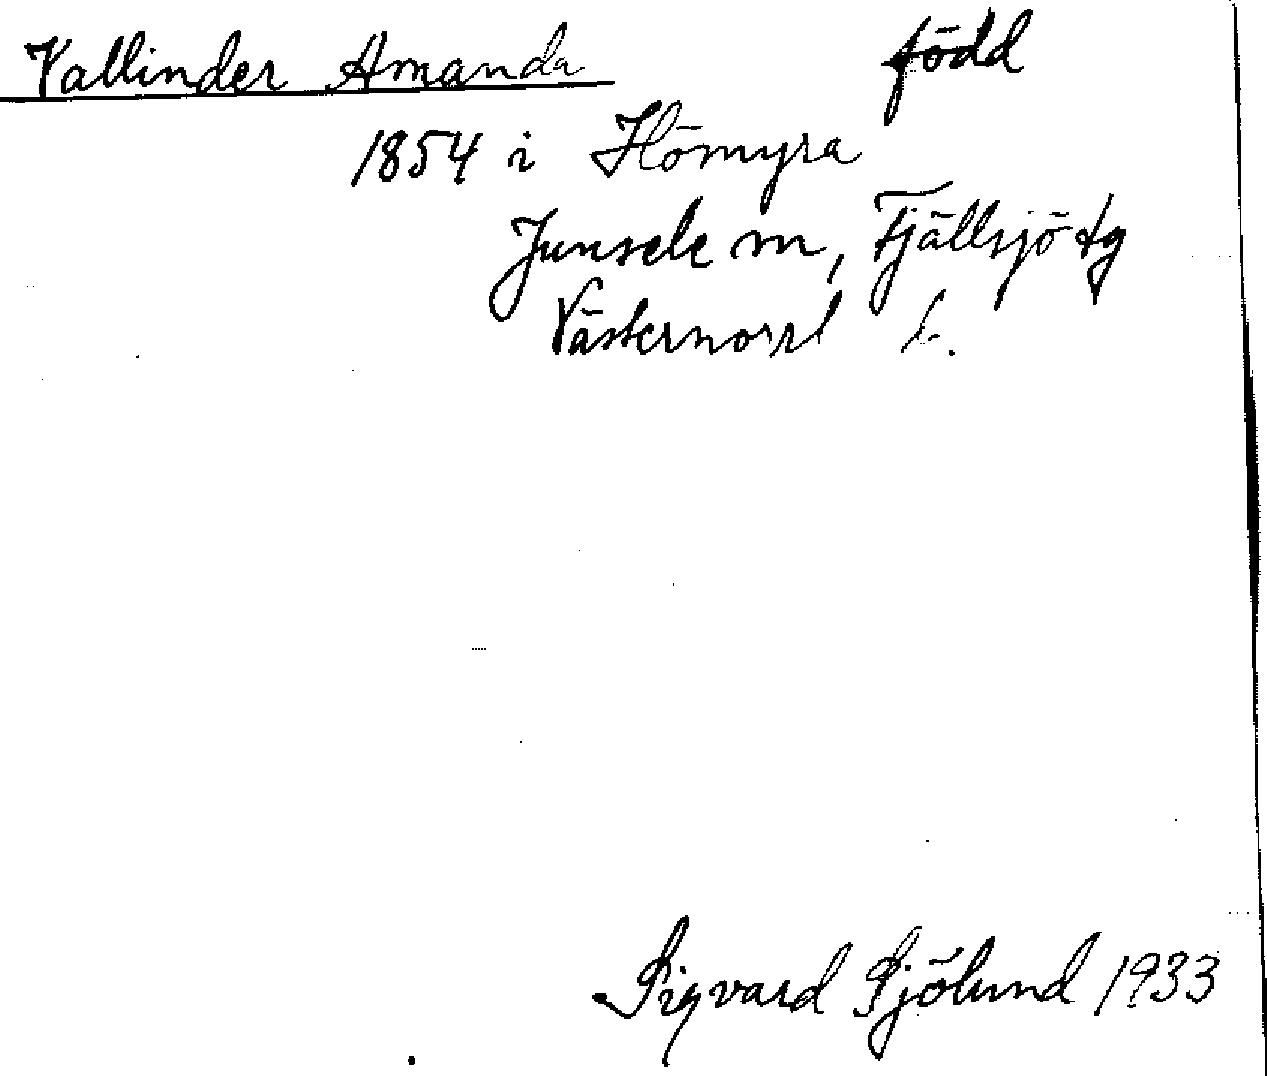 Vallinder Amanda född
1854 i Hömyra
Junsele m, Fjällsjö tg
Västernorrl l.
Sigvard Sjölund 1933